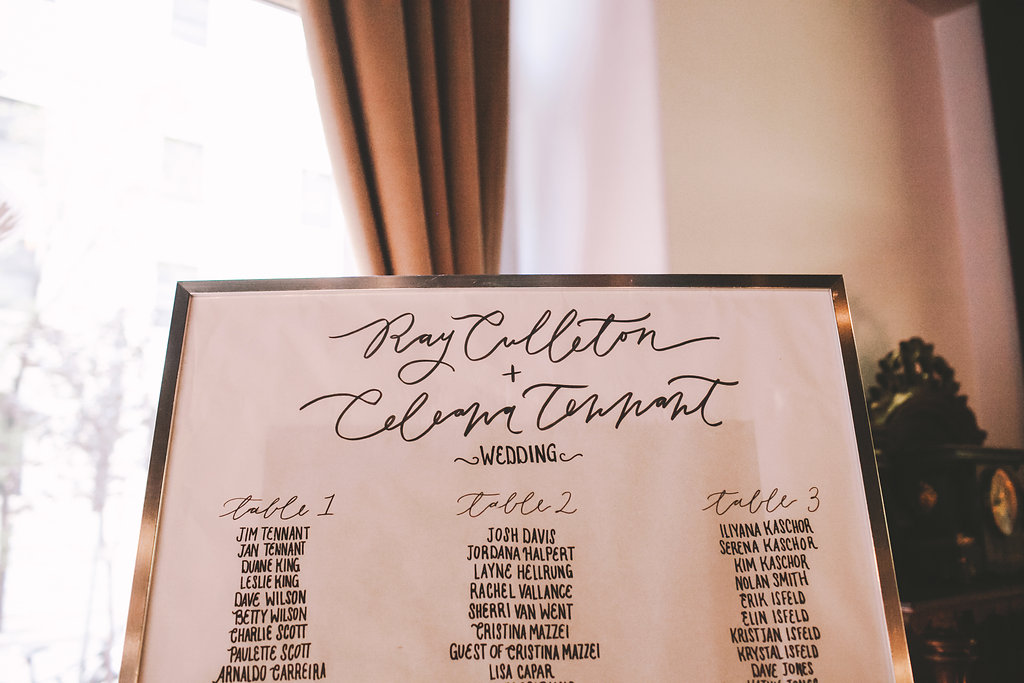 Ray Culleton
+
Celeana Tennant
WEDDING
table 1
JIM TENNANT
JAN TENNANT
DUANE KING
LESLIE KING
DAVE WILSON
BETTY WILSON
CHARLIE SCOTT
PAULETTE SCOTT
ARNALDO CARREIRA
table 2
JOSH DAVIS
JORDANA HALPERT
LAYNE HELLRUNG
RACHEL VALLANCE
SHERRI VAN WENT
CRISTINA MAZZEI
GUEST OF CRISTINA MAZZEI
LISA CAPAR
table 3
ILIYANA KASCHOR
SERENA KASCHOR
KIM KASCHOR
NOLAN SMITH
ERIK ISFELD
ELIN ISFELD
KRISTIAN ISFELD
KRYSTAL ISFELD
DAVE JONES